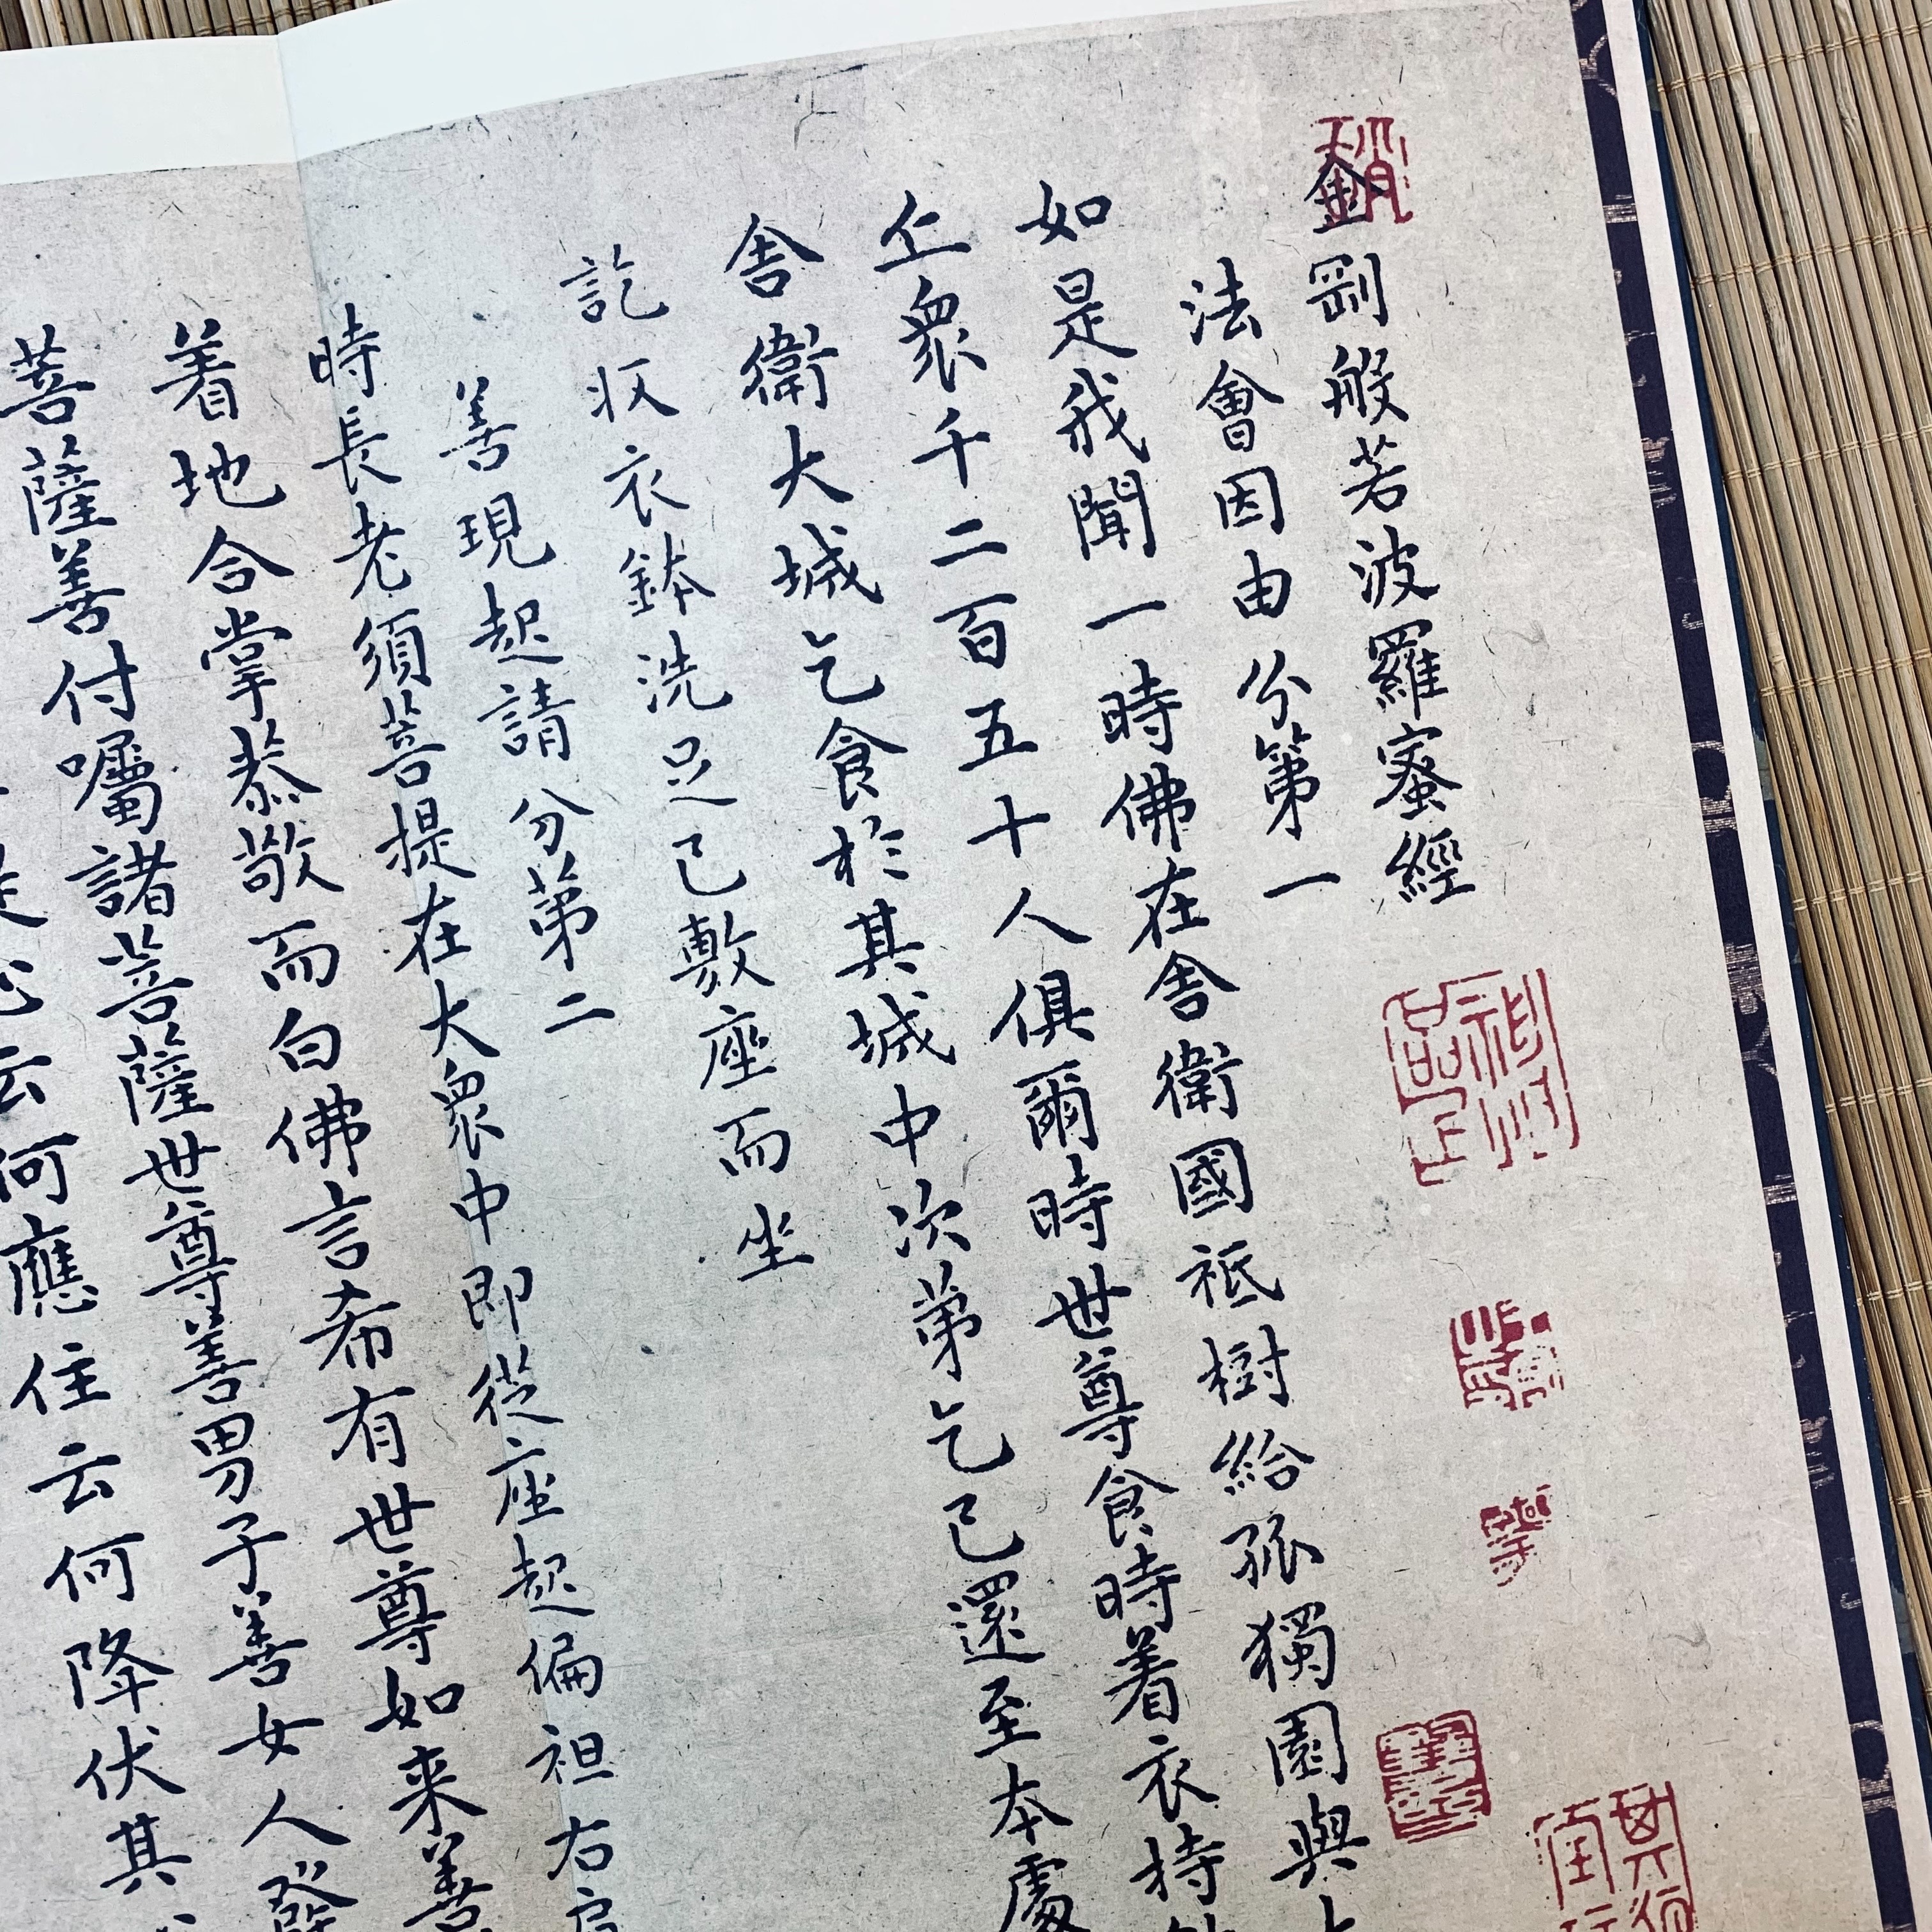 金剛般若波羅蜜經
法會因由分第一
如是我聞一時佛在舍衛國祇樹給孤獨園與
丘眾千二百五十人俱爾時世尊食時着衣持
舍衛大城乞食於其城中次第乞已還至本處
訖收衣鉢洗足已敷座而坐
善現起請分第二
時長老須菩提在大眾中即從座起偏袒右
着地合掌恭敬而白佛言希有世尊如来善
菩薩善付囑諸菩薩世尊善男子善女人發
云何應住云何降伏其